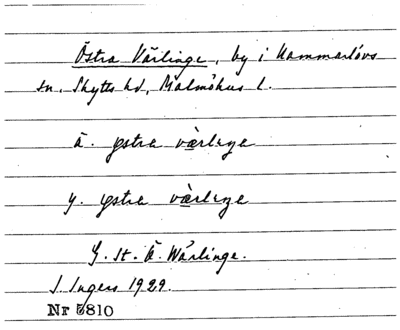 Östra Värlinge, by i Hammarlövs
sn, Skytts hd, Malmöhus l.
ä. ystra värlıŋe
y. ystra värlıŋe
G. St. Ö. Wärlinge.
I. Ingers 1929.
Nr 5810